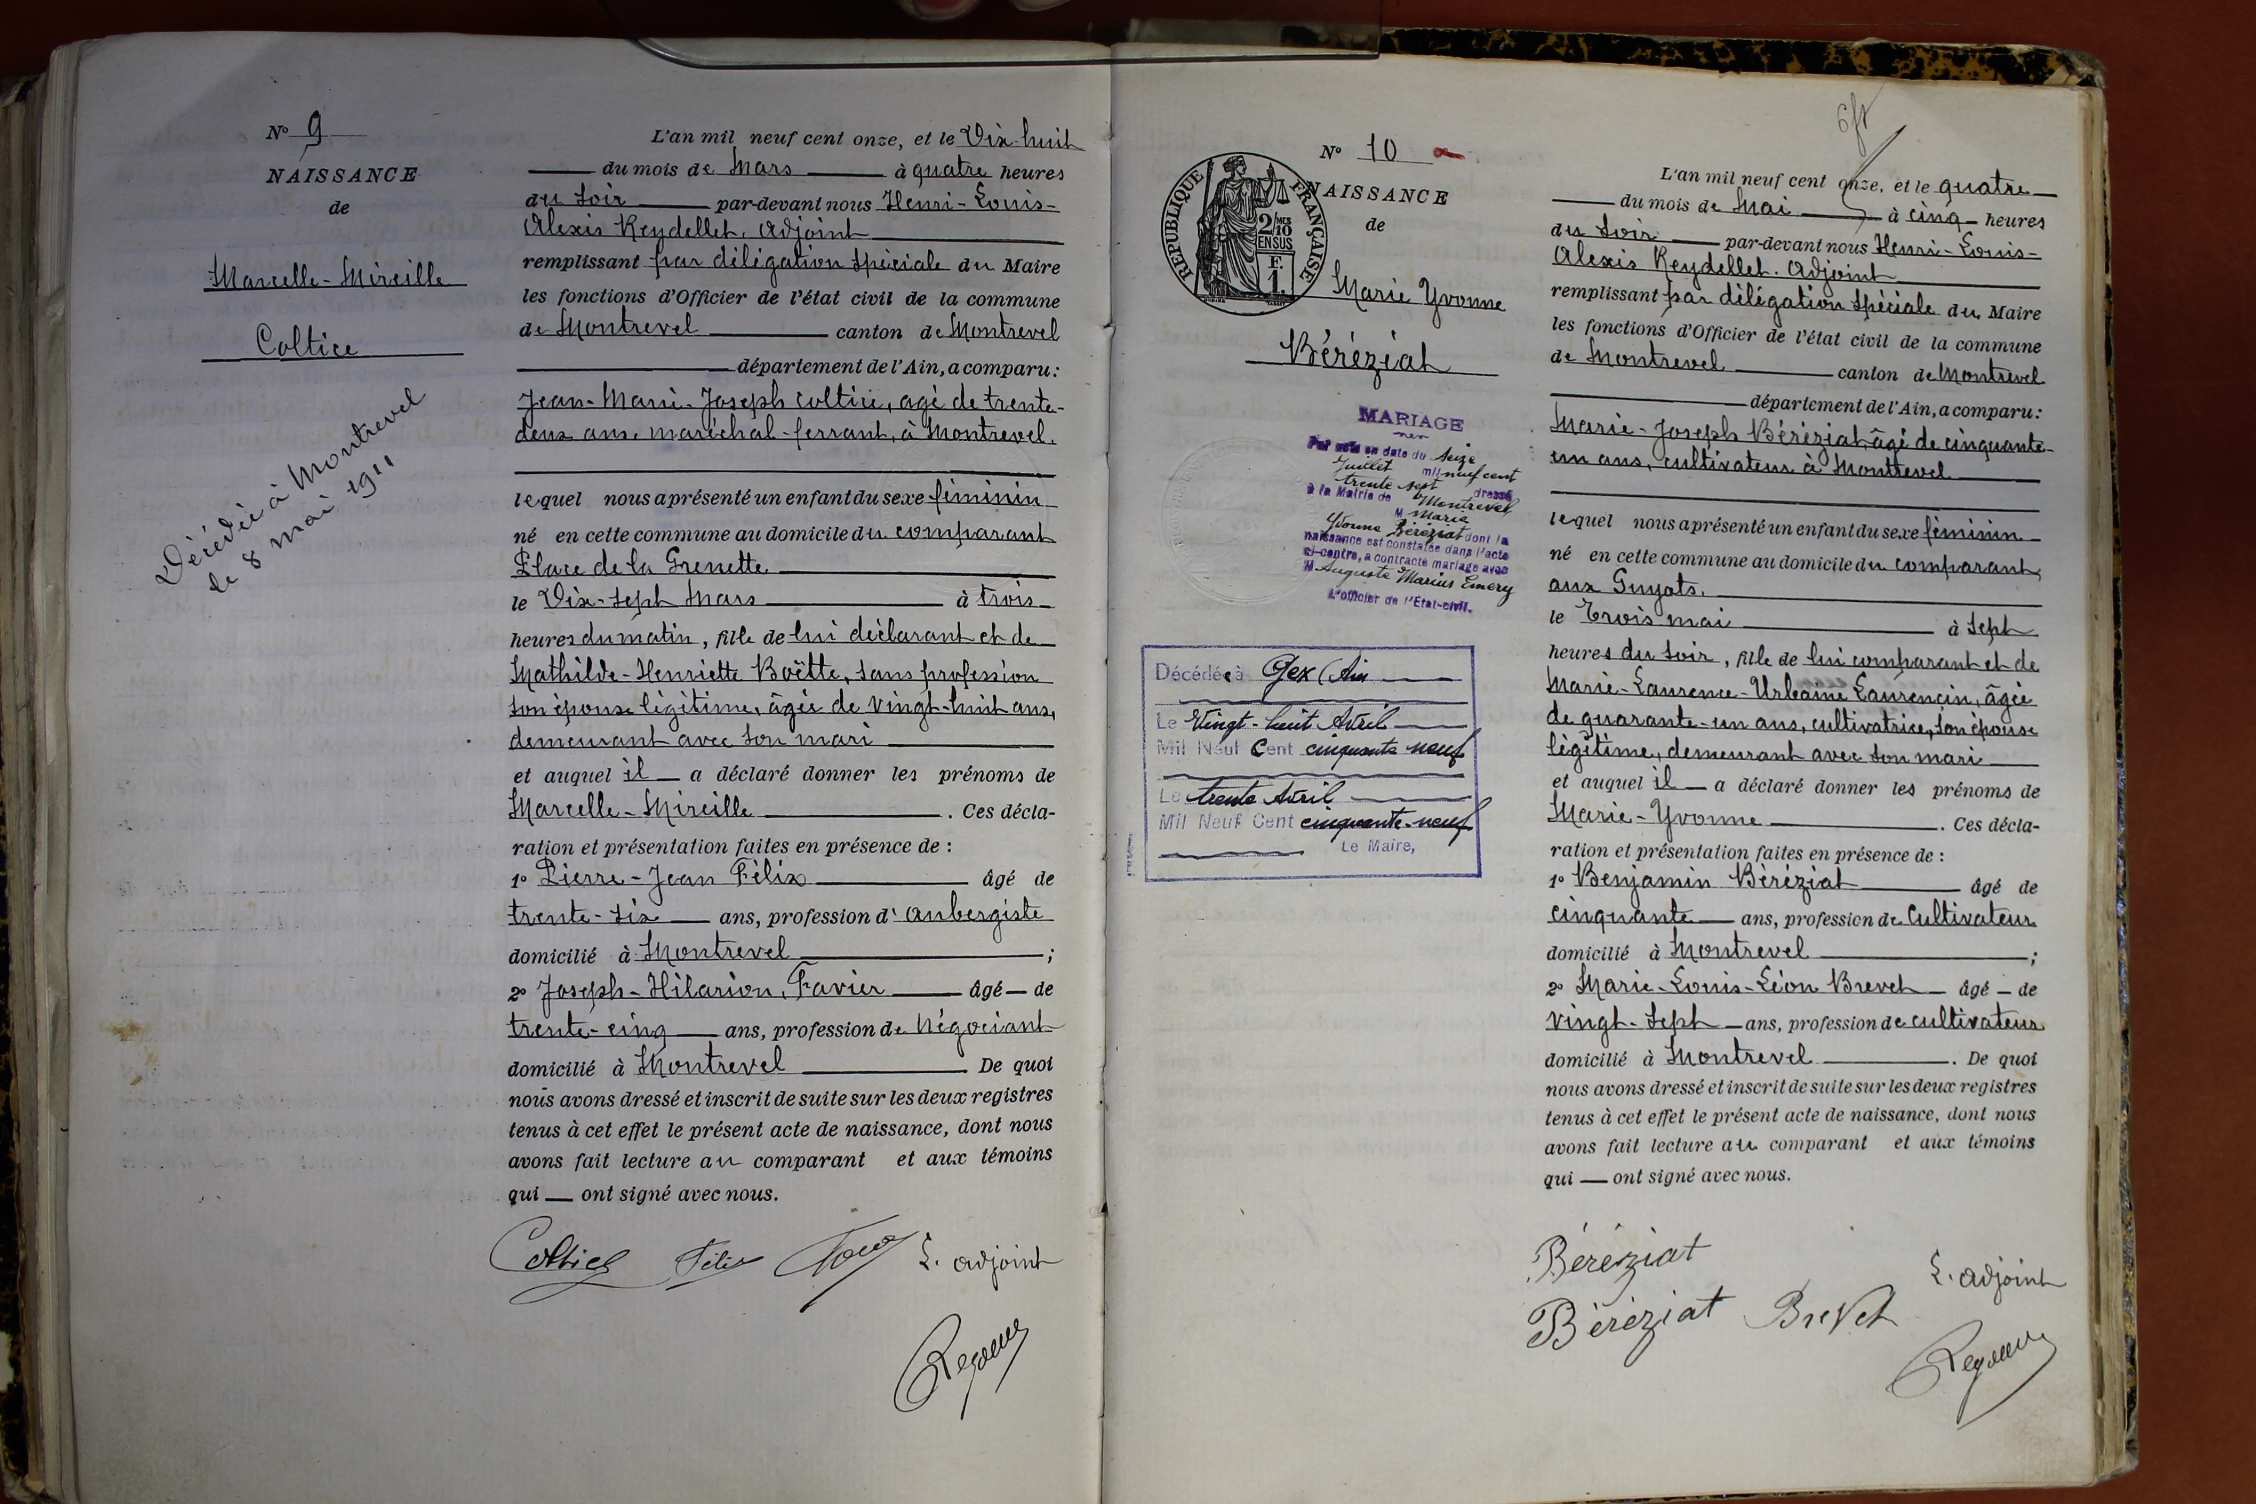 N° 9
NAISSANCE
de
Marcelle-Mireille
Coltice
Décédée à Montrevel
le 8 mai 1911
L'an mil neuf cent onze, et le Dix-huit
du mois de Mars à quatre heures
du soir par-devant nous Henri-Louis-
Alexis Reydellet, adjoint
remplissant par délégation spéciale du Maire
les fonctions d'Officier de l'état civil de la commune
de Montrevel canton de Montrevel
département de l'Ain, a comparu:
Jean-Marie-Joseph Coltice, agé de trente-
deux ans, maréchal-ferrant, à Montrevel.
lequel nous a présenté un enfant du sexe féminin
né en cette commune au domicile du comparant
Place de la Grenette
le Dix-sept Mars à trois
heures du matin, fille de lui déclarant et de
Mathilde-Henriette Boëtte, sans profession
son épouse légitime, âgée de vingt-huit ans,
demeurant avec son mari
et auquel il a déclaré donner les prénoms de
Marcelle-Mireille. Ces décla-
ration et présentation faites en présence de :
1° Pierre-Jean Félix âgé de
trente-six ans, profession d'aubergiste
domicilié à Montrevel ;
2° Joseph-Hilarion, Favier âgé de
trente-cinq ans, profession de Négociant
domicilié à Montrevel. De quoi
nous avons dressé et inscrit de suite sur les deux registres
tenus à cet effet le présent acte de naissance, dont nous
avons fait lecture au comparant et aux témoins
qui ont signé avec nous.
Coltice Félix L. adjoint
N° 10
NAISSANCE
de
RÉPUBLIQUE FRANÇAISE
2/10 MES
EN SUS
F.
1.
Marie Yvonne
Béréziat
MARIAGE
Par acte en date du seize
Juillet mil neuf cent
trente sept dressé
à la Mairie de Montrevel
M Marie
Yvonne Béréziat dont la
naissance est constatée dans l'acte
ci-contre, a contracté mariage avec
M Auguste Marius Emery
L'officier de l'Etat-civil.
Décédée à Gex (Ain
Le Vingt-huit Avril
Mil Neuf Cent cinquante neuf
Le trente Avril
Mil Neuf Cent cinquante-neuf
Le Maire,
L'an mil neuf cent onze, et le quatre
du mois de Mai à cinq heures
du soir par-devant nous Henri-Louis-
Alexis Reydellet. adjoint
remplissant par délégation spéciale du Maire
les fonctions d'Officier de l'état civil de la commune
de Montrevel canton de Montrevel
département de l'Ain, a comparu:
Marie-Joseph Béréziat, âgé de cinquante-
un ans, cultivateur à Montrevel
lequel nous a présenté un enfant du sexe féminin
né en cette commune au domicile du comparant,
aux Guyots.
le Trois mai à sept
heures du soir, fille de lui comparant et de
Marie-Laurence-Urbaine Laurencin, âgée
de quarante-un ans, cultivatrice, son épouse
légitime, demeurant avec son mari
et auquel il a déclaré donner les prénoms de
Marie-Yvonne. Ces décla-
ration et présentation faites en présence de :
1° Benjamin Béréziat âgé de
cinquante ans, profession de Cultivateur
domicilié à Montrevel ;
2° Marie-Louis-Léon Brevet âgé de
vingt-sept ans, profession de cultivateur
domicilié à Montrevel. De quoi
nous avons dressé et inscrit de suite sur les deux registres
tenus à cet effet le présent acte de naissance, dont nous
avons fait lecture au comparant et aux témoins
qui ont signé avec nous.
Béréziat
L. adjoint
Béréziat Brevet